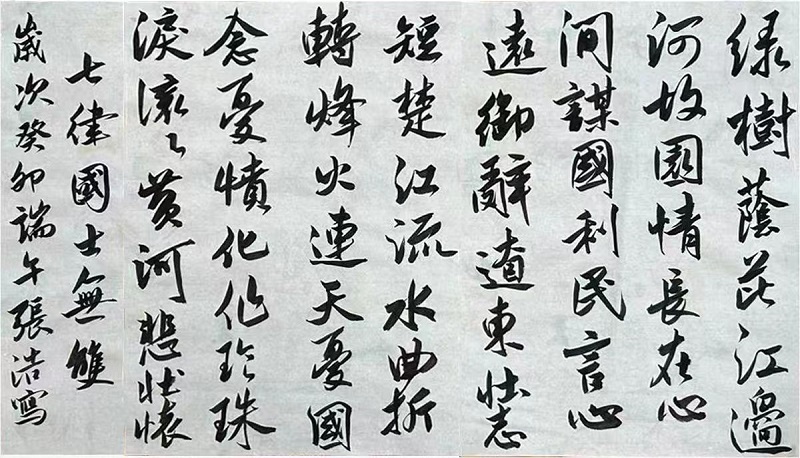 绿樹蔭茈江邊
河故園情長在心
间謀國利民言心
遠御辭遼東壯志
短楚江流水曲折
轉烽火連天憂國
念憂憤化作珍珠
淚滾々黄河悲壯懷
七律國士無雙
歲次癸卯端午張浩寫